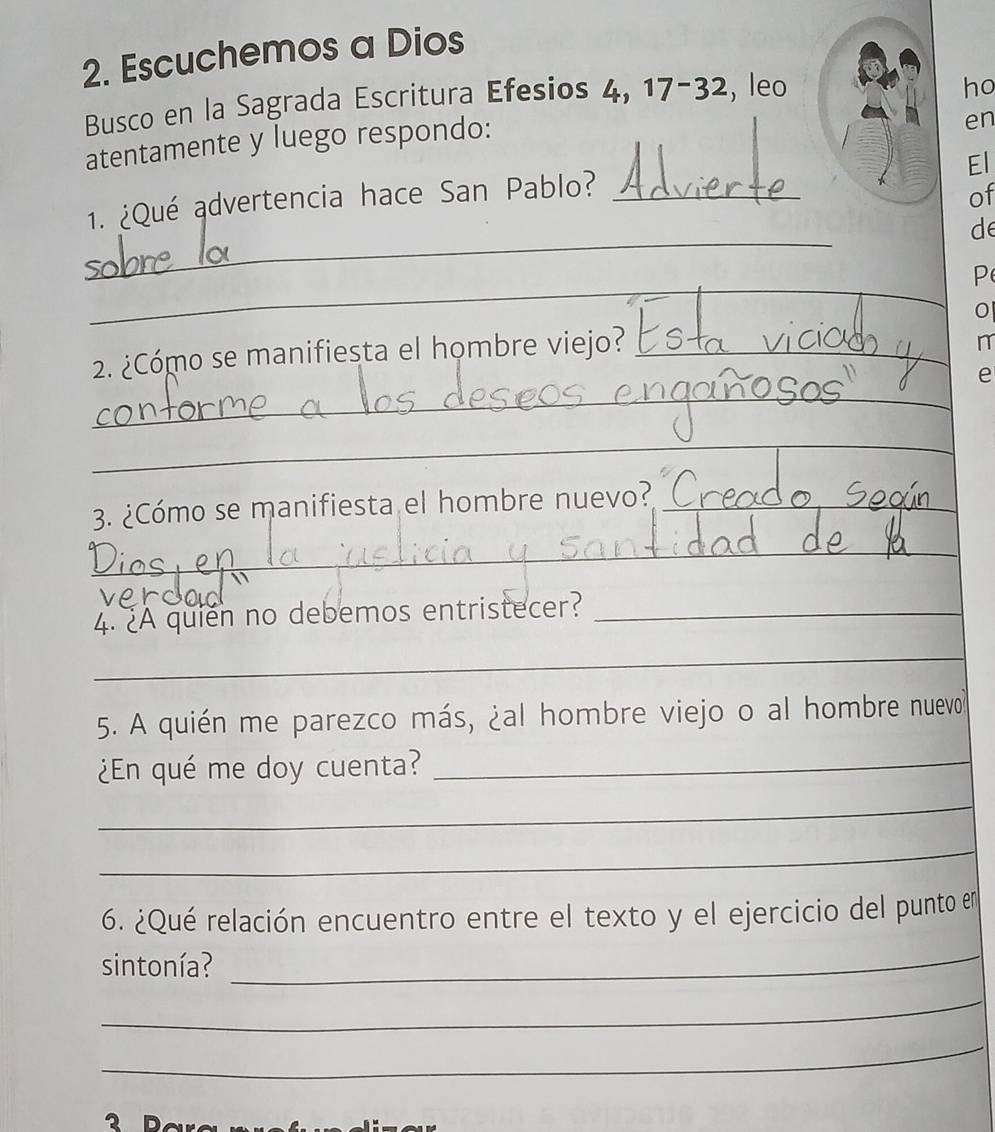 2. Escuchemos a Dios
Busco en la Sagrada Escritura Efesios 4, 17-32, leo
atentamente y luego respondo:
1. ¿Qué advertencia hace San Pablo? Advierte
sobre la
2. ¿Cómo se manifiesta el hombre viejo? Esta viciado y
conforme a los deseos engañosos"
3. ¿Cómo se manifiesta el hombre nuevo? "Creado, Según
Dios, en la justicia y santidad de la
verdad"
4. ¿A quién no debemos entristecer?
5. A quién me parezco más, ¿al hombre viejo o al hombre nuevo?
¿En qué me doy cuenta?
6. ¿Qué relación encuentro entre el texto y el ejercicio del punto en
sintonía?
3. Para
ho
en
El
of
de